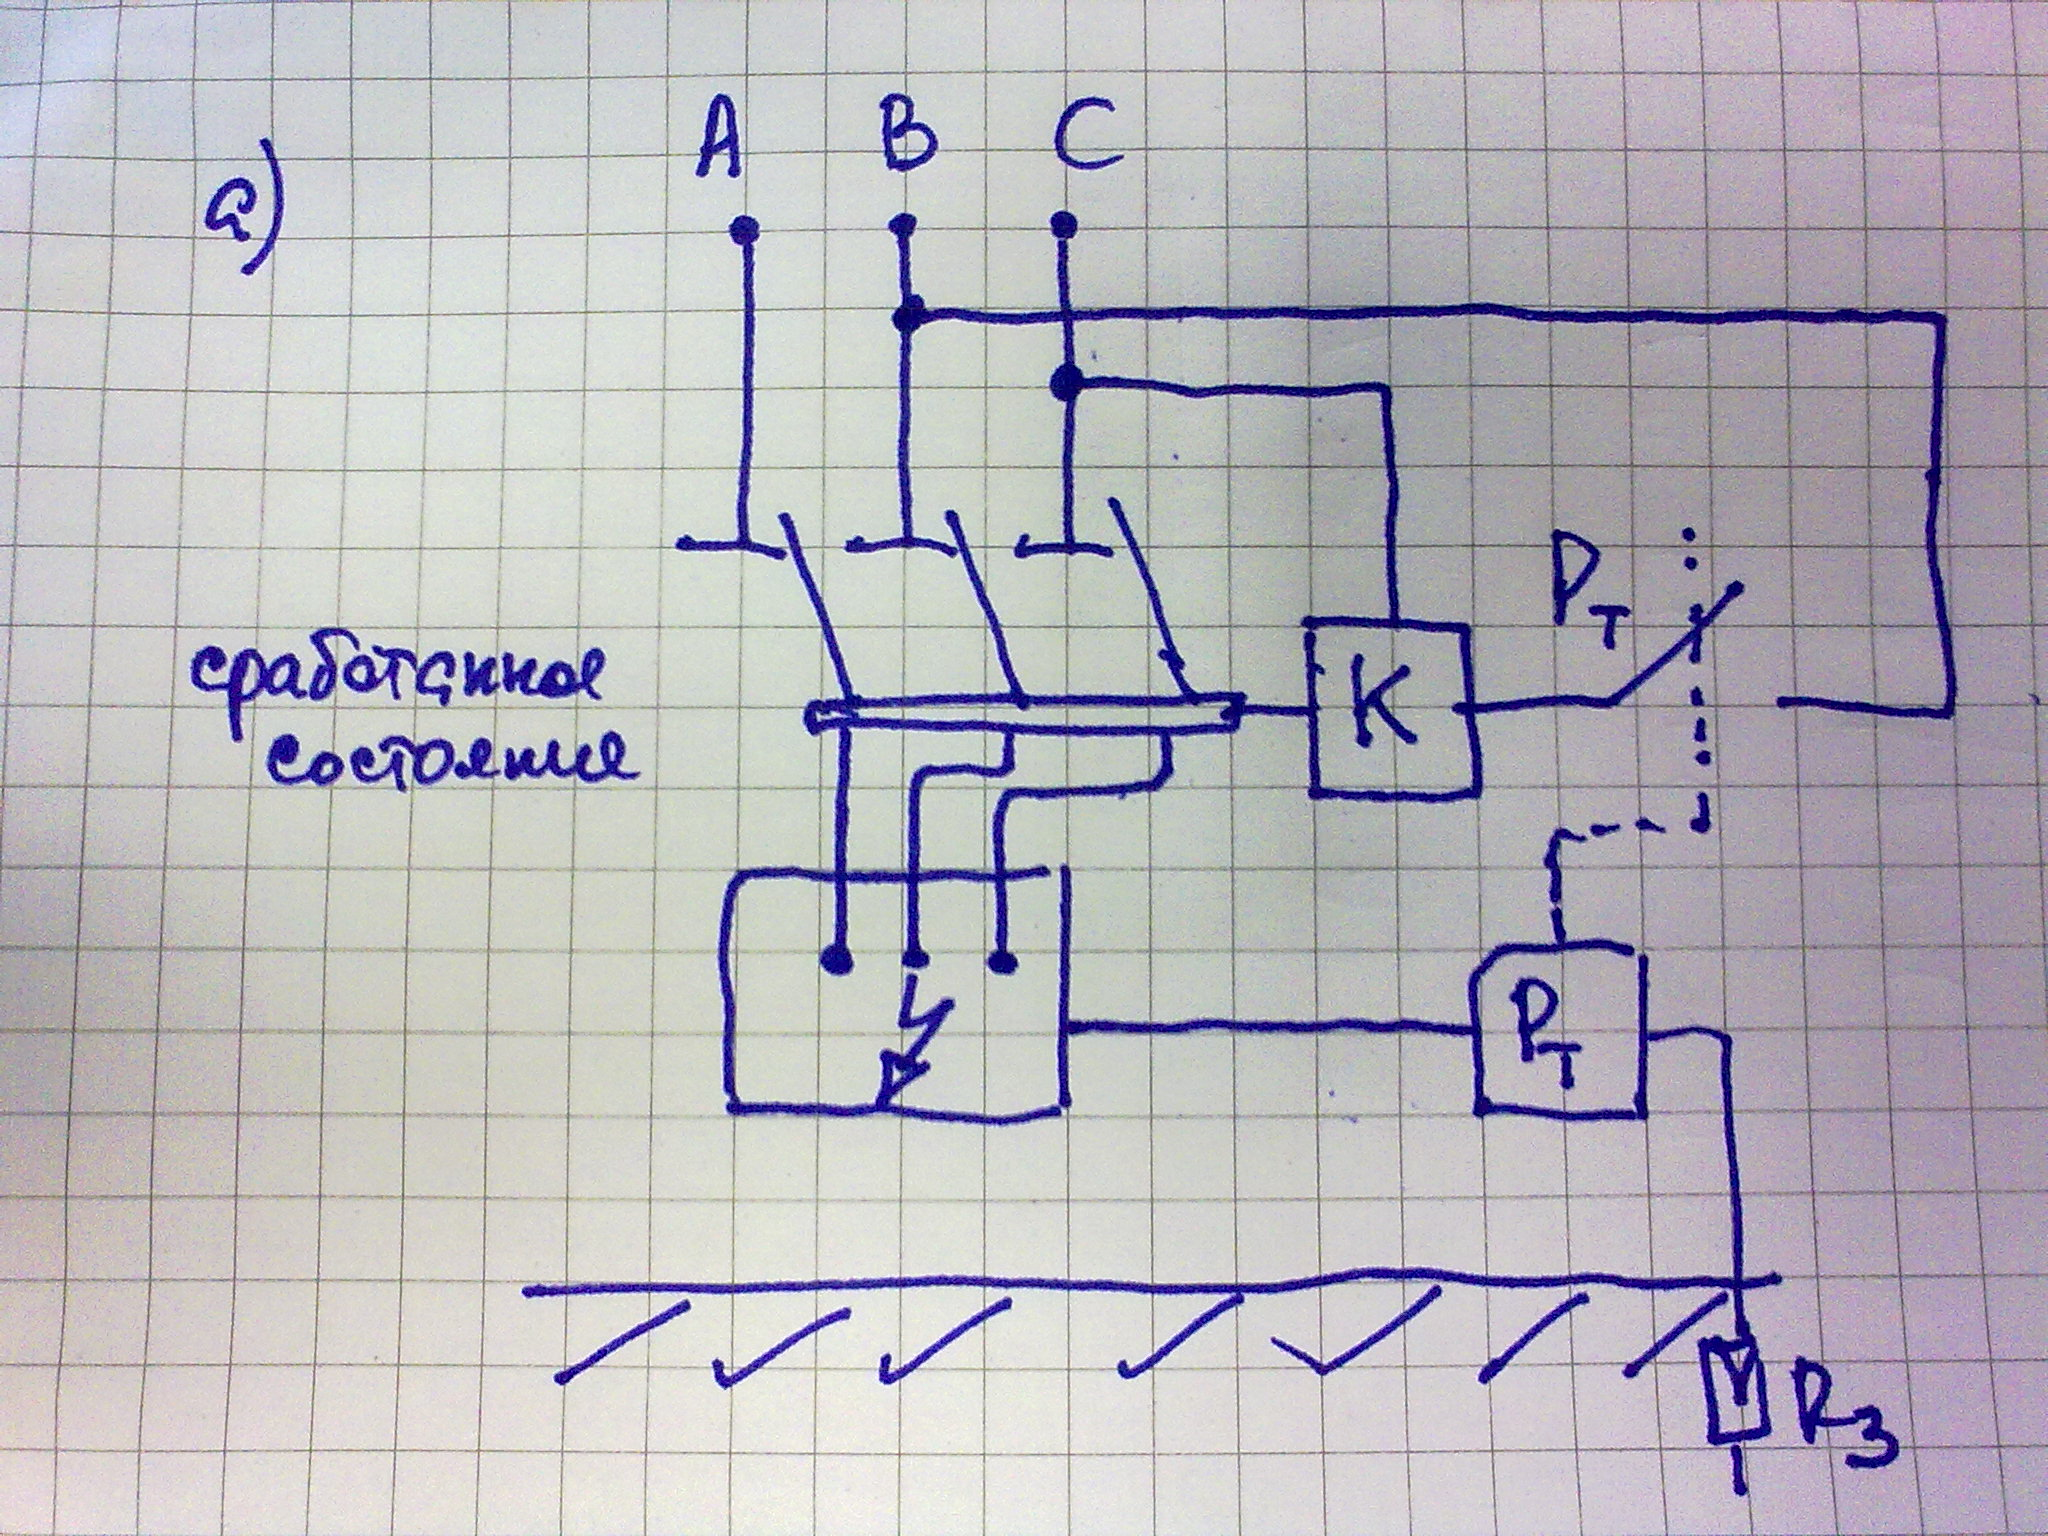 а)
A B C
сработанное
состояние
Pт
K
Pт
Rз